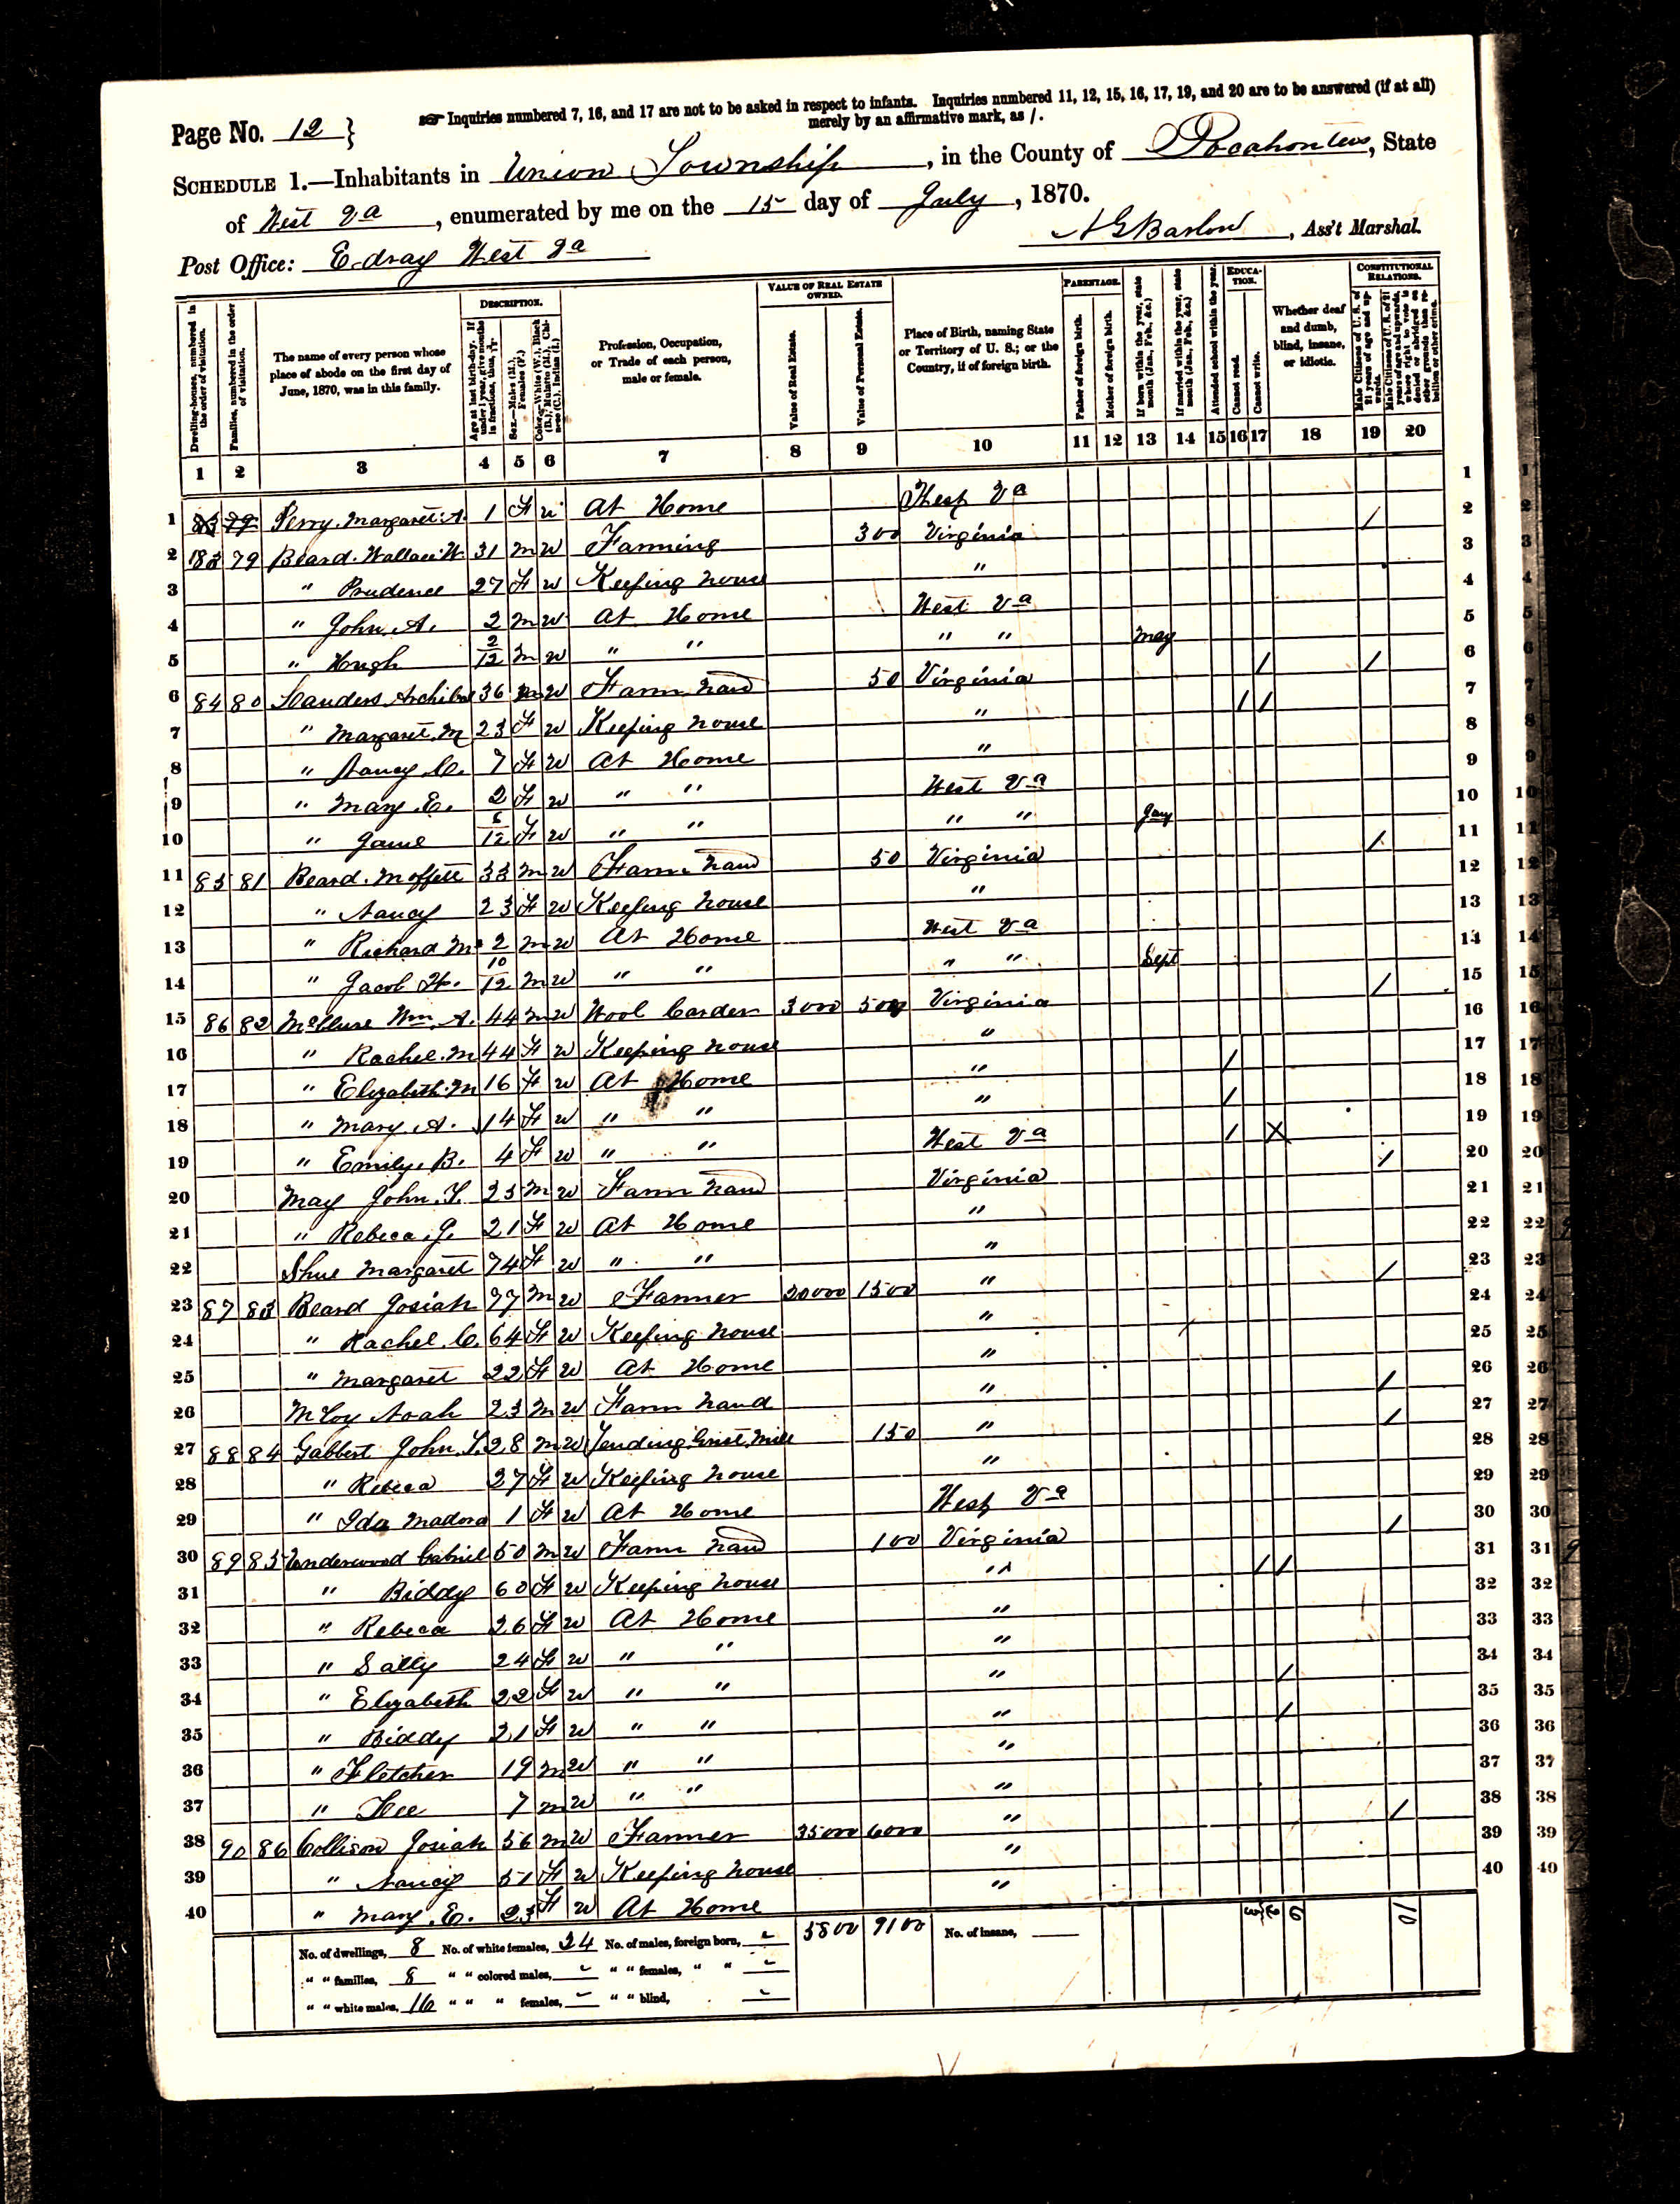 Inquiries numbered 7, 16, and 17 are not to be asked in respect to infants. Inquiries numbered 11, 12, 15, 16, 17, 19, and 20 are to be answered (if at all)
merely by an affirmative mark, as /.
Page No. 12 }
SCHEDULE 1.—Inhabitants in Union Township, in the County of Pocahontas, State
of West Va, enumerated by me on the 15 day of July, 1870.
Post Office: Edray West Va
A G Barlow, Ass't Marshal.
Dwelling-houses, numbered in the order of visitation.
Families, numbered in the order of visitation.
The name of every person whose place of abode on the first day of June, 1870, was in this family.
DESCRIPTION.
Age at last birth-day. If under 1 year, give months in fractions, thus, 3/12
Sex.—Males (M.), Females (F.)
Color.—White (W.), Black (B.), Mulatto (M.), Chinese (C.), Indian (I.)
Profession, Occupation, or Trade of each person, male or female.
VALUE OF REAL ESTATE OWNED.
Value of Real Estate.
Value of Personal Estate.
Place of Birth, naming State or Territory of U. S.; or the Country, if of foreign birth.
PARENTAGE.
Father of foreign birth.
Mother of foreign birth.
If born within the year, state month (Jan., Feb., &c.)
If married within the year, state month (Jan., Feb., &c.)
Attended school within the year.
EDUCATION.
Cannot read.
Cannot write.
Whether deaf and dumb, blind, insane, or idiotic.
CONSTITUTIONAL RELATIONS.
Male Citizens of U. S. of 21 years of age and upwards.
Male Citizens of U. S. of 21 years of age and upwards, whose right to vote is denied or abridged on other grounds than rebellion or other crime.
1 2 3 4 5 6 7 8 9 10 11 12 13 14 15 16 17 18 19 20
1 83 79 Perry. Margaret. A. 1 F W At Home West Va 1
2 83 79 Beard. Wallace W. 31 M W Farming 300 Virginia / 2
3 " Prudence 27 F W Keeping house " 3
4 " John. A. 2 M W At Home West Va 4
5 " Hugh 2/12 M W " " " " May 5
6 84 80 Sanders Archibal 36 M W Farm hand 50 Virginia / / 6
7 " Margaret. M 23 F W Keeping house " / / 7
8 " Nancy. C. 7 F W At Home " 8
9 " Mary. E. 2 F W " " West Va 9
10 " Jane /12 F W " " " " Jany 10
11 85 81 Beard. Moffett 33 M W Farm hand 50 Virginia / 11
12 " Nancy 23 F W Keeping house " 12
13 " Richard M. 2 M W At Home West Va 13
14 " Jacob H. 10/12 M W " " " " Sept 14
15 86 82 McClure Wm. A. 44 M W Wool Carder 3000 500 Virginia / 15
16 " Rachel. M 44 F W Keeping house " 16
17 " Elizabeth. M 16 F W At Home " / 17
18 " Mary. A. 14 F W " " " / 18
19 " Emily. B. 4 F W " " West Va / X 19
20 May John. T. 25 M W Farm hand Virginia / 20
21 " Rebeca. J. 21 F W At Home " 21
22 Shue Margaret 74 F W " " " 22
23 87 83 Beard Josiah 77 M W Farmer 20000 1500 " / 23
24 " Rachel. C. 64 F W Keeping house " 24
25 " Margaret 22 F W At Home " 25
26 McCoy Noah 23 M W Farm hand " / 26
27 88 84 Gabbert John. T. 28 M W Tending Grist Mill 150 " / 27
28 " Rebeca 27 F W Keeping house " 28
29 " Ida Madora 1 F W At Home West Va 29
30 89 85 Underwood Gabriel 50 M W Farm hand 100 Virginia / 30
31 " Biddy 60 F W Keeping house " / / 31
32 " Rebeca 26 F W At Home " 32
33 " Sally 24 F W " " " 33
34 " Elizabeth 22 F W " " " / 34
35 " Biddy 21 F W " " " / 35
36 " Fletcher 19 M W " " " 36
37 " Lee 7 M W " " " 37
38 90 86 Collison Josiah 56 M W Farmer 35000 6000 " / 38
39 " Nancy 51 F W Keeping house " 39
40 " Mary. E. 23 F W At Home " 40
No. of dwellings, 8 No. of white females, 24 No. of males, foreign born, 5800 9100 No. of insane, 10
" " families, 8 " " colored males, " " females, " "
" " white males, 16 " " " females, " " blind,